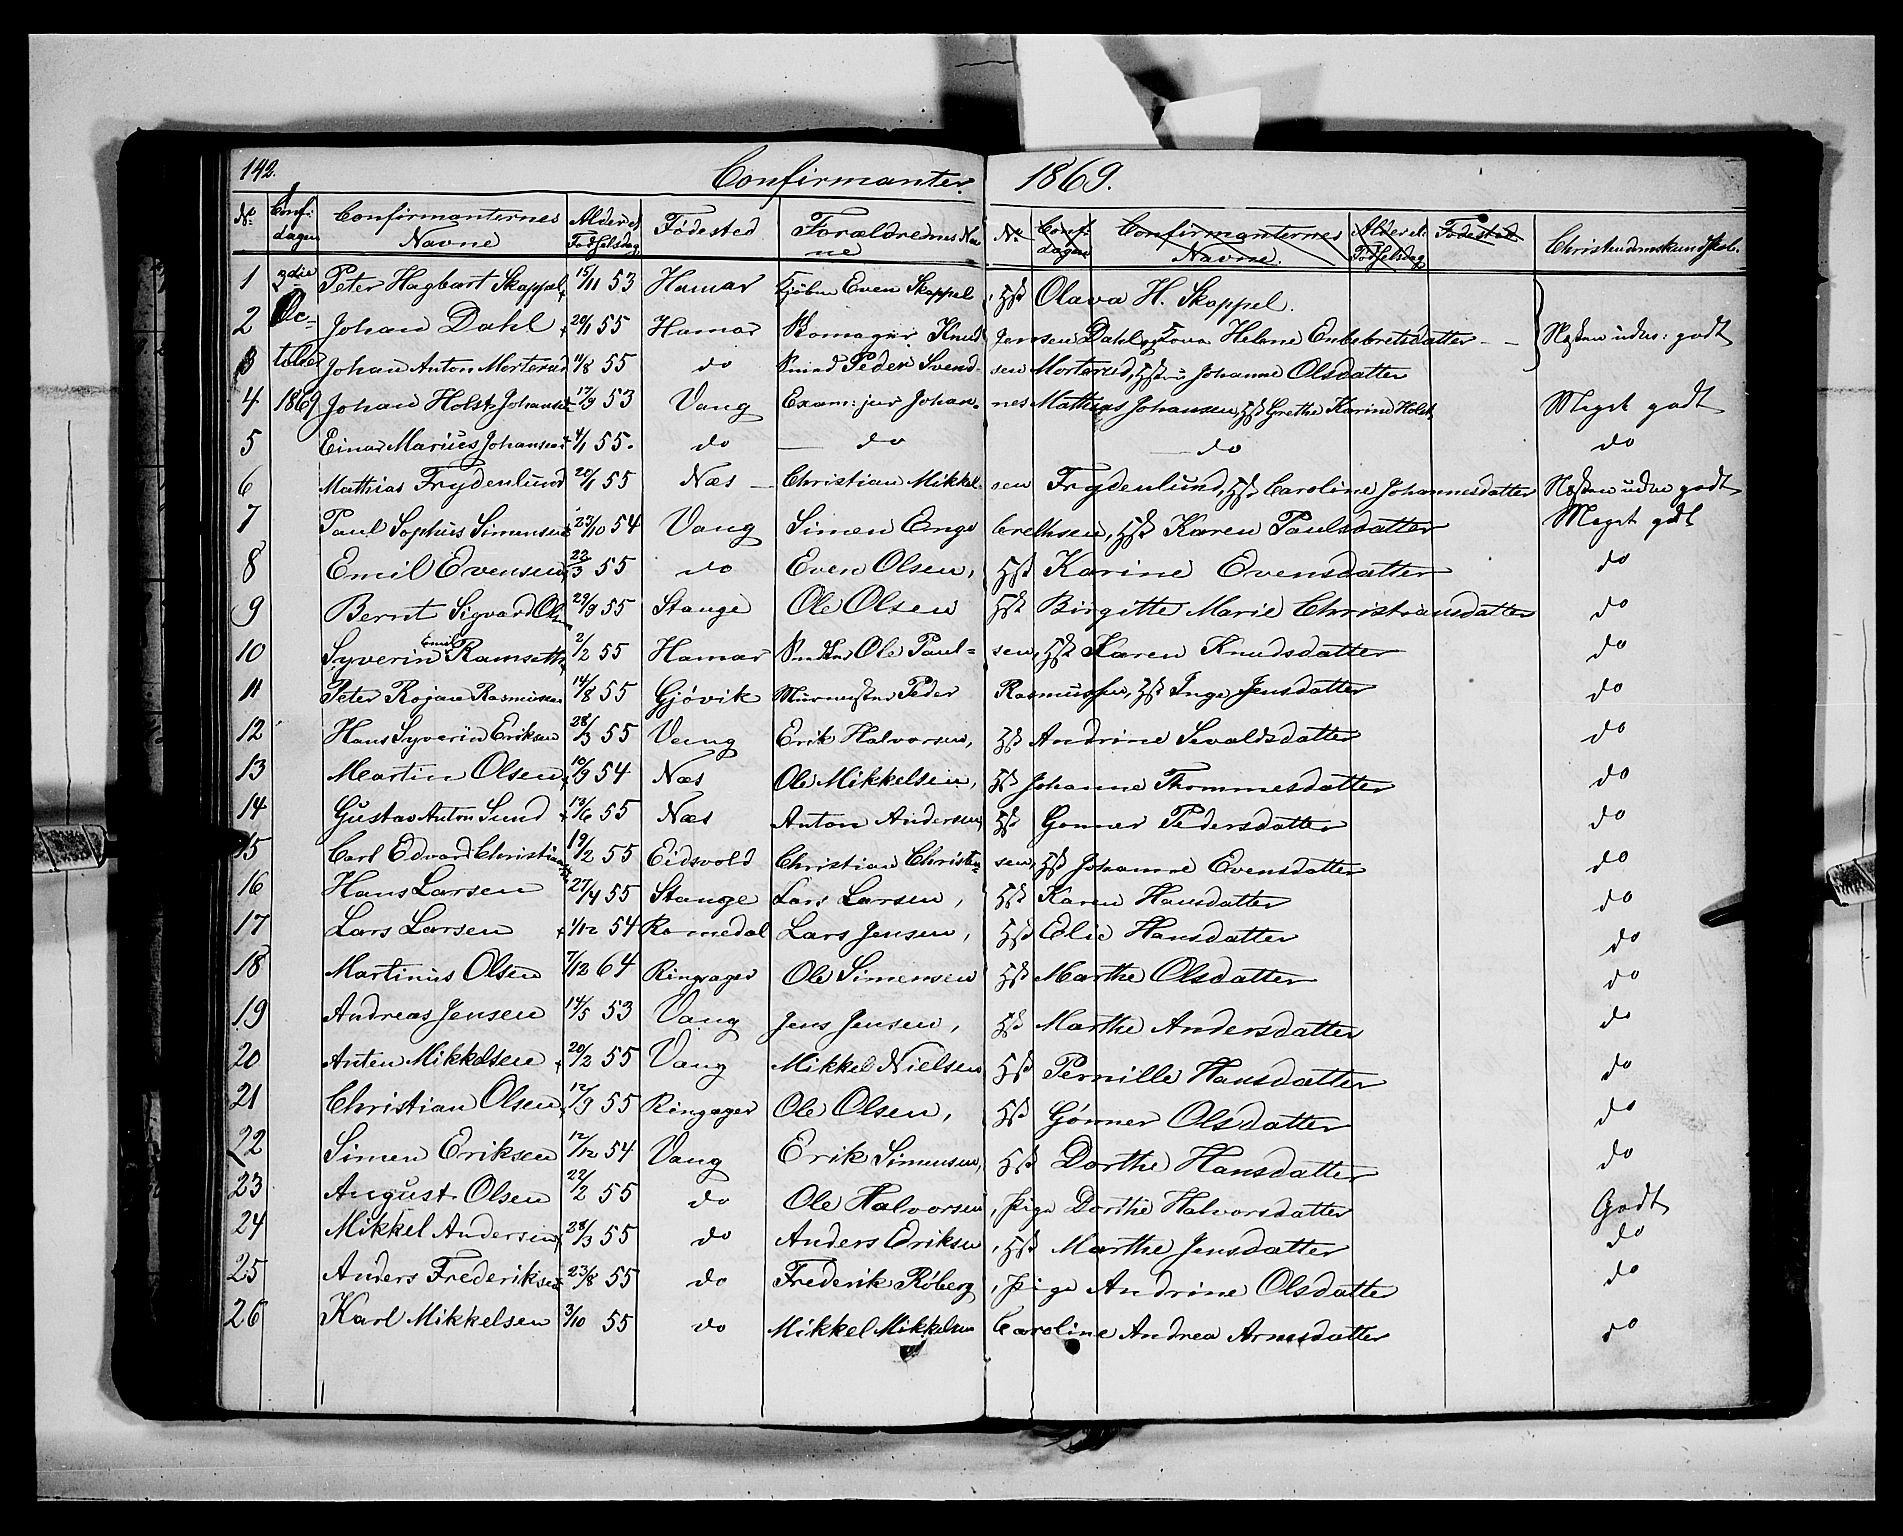 142. Confirmanter. 1869.
No. Conf: dagen Confirmanternes Navne Alder et Fødselsdag Fødested Forældrenes Navne No. Conf: dagen Confirmanternes Navne. Alder et Fødselsdag Fødested Christendomskundskab.
1 3die Peter Hagbart Skappel 15/11 53 Hamar Kjøbm Even Skappel , Hst Olava H. Skappel.
2 Oc= Johan Dahl 20/1 55 Hamar Knud Jensen Dahl og Kone Helene Enbebretsdatter — Næsten uden: godt
3 tober Johan Anton Morterud 11/8 55 do Smed Peder Svend- sen Morterud, Hst Johanne Olsdatter
4 1869 Johan Holst Johansen 17/9 53 Vang Exam: jur Johan- nes Mathias Johansen, Hst Grethe Karine Holst Meget godt
5 Einar Marius Johansen 4/1 55. do — do — do do
6 Mathias Frydenlund 20/1 55 Næs — Christian Mikkel- sen Frydenlund, Hst Caroline Johannesdatter Næsten uden godt
7 Paul Sophus Simensen 23/10 54 Vang Simen Enge brethsen, Hst Karen Paulsdatter Meget godt
8 Emil Evensen 22/3 55 do Even Olsen, Hst Karine Evensdatter do
9 Bernt Sigvard Olsen 29/9 55 Stange Ole Olsen Hst Birgitte Marie Christiansdatter do
10 Syverin Emil Ramseth 2/2 55 Hamar Ole Paul= sen, Hst Karen Knudsdatter do
11 Peter Rojan Rasmussen 14/8 55 Gjøvik Murmester Peder Rasmussen, Hst Inge Jensdatter do
12 Hans Syverin Eriksen 28/3 55 Vang Erik Halvorsen, Hst Andrine Sevaldsdatter do
13 Martin Olsen 10/9 54 Næs Ole Mikkelsen, Hst Johanne Thommesdatter do
14 Gustav Anton Lund 13/6 55 Næs Anton Andersen, Hst Gonner Pedersdatter do
15 Carl Edvard Christiansen 19/2 55 Eidsvold Christian Christen= sen, Hst Johanne Evensdatter do
16 Hans Larsen 27/4 55 Stange Lars Larsen, Hst Karen Hansdatter do
17 Lars Larsen 1/12 54 Romedal Lars Jensen, Hst Olie Hansdatter do
18 Martinus Olsen 7/12 64 Ringsager Ole Simensen Hst Marthe Olsdatter do
19 Andreas Jensen 14/5 53 Vang Jens Jensen, Hst Marthe Andersdatter do
20 Anten Mikkelsen 20/2 55 Vang Mikkel Nielsen Hst Pernille Hansdatter do
21 Christian Olsen 12/9 55 Ringager Ole Olsen, Hst Gønner Olsdatter do
22 Simen Eriksen 12/12 54 Vang Erik Simensen, Hst Dorthe Hansdatter do
23 August Olsen 22/2 55 do Ole Halvorsen , Pige Dorthe Halvorsdatter Godt
24 Mikkel Andersen 28/3 55 do Anders Eriksen , Hst Marthe Jensdatter do
25 Anders Frederiksen 23/8 55 do Frederik Röberg , Pige Andrine Olsdatter do
26 Karl Mikkelsen 3/10 55 do Mikkel Mikkelsen Caroline Andrea Arnesdatter do